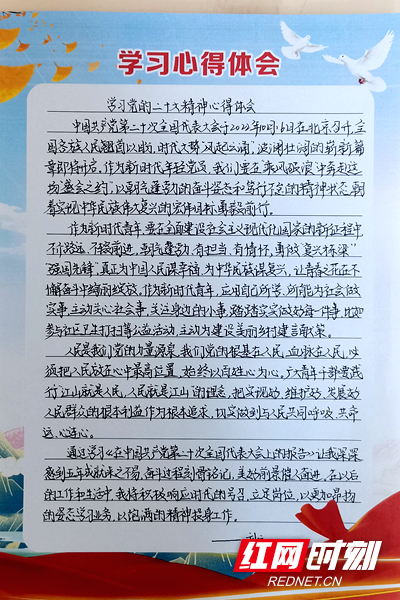 学习心得体会
学习党的二十大精神心得体会
中国共产党第二十次全国代表大会于2022年10月16日在北京召开,全
国各族人民翘首以盼,时代大势风起云涌,波澜壮阔的崭新篇
章即将开启。作为新时代年轻党员,我们要在“乘风破浪”中奔赴这
场“盛会之约”,以朝气蓬勃的奋斗姿态和笃行不怠的精神状态,朝
着实现中华民族伟大复兴的宏伟目标勇毅前行。
作为新时代青年,要在全面建设社会主义现代化国家的新征程中
不负韶华、接续前进、朝气蓬勃、有担当、有情怀,勇做“复兴栋梁”
“强国先锋”,真正为中国人民谋幸福,为中华民族谋复兴,让青春之花在不
懈奋斗中绚丽绽放。作为新时代青年,应用自己所学、所能为社会做
实事,主动关心社会事,关注身边的小事,踏踏实实做好每一件事,比如
参与社区卫生打扫等公益活动,主动为建设美丽乡村建言献策。
人民是我们党的力量源泉,我们党的根基在人民,血脉在人民,必
须把人民放在心中最高位置,始终以百姓心为心。广大青年干部要践
行江山就是人民、人民就是江山的理念,把实现好、维护好、发展好
人民群众的根本利益作为根本追求,切实做到与人民共同呼吸、共命
运、心连心。
通过学习《在中国共产党第二十次全国代表大会上的报告》让我深深
感到五年成就来之不易,奋斗过程刻骨铭记,美好前景催人奋进,在以后
的工作和生活中,我将积极响应时代的号召,立足岗位,以更加昂扬
的姿态学习业务,以饱满的精神投身工作。
红网时刻
REDNET.CN